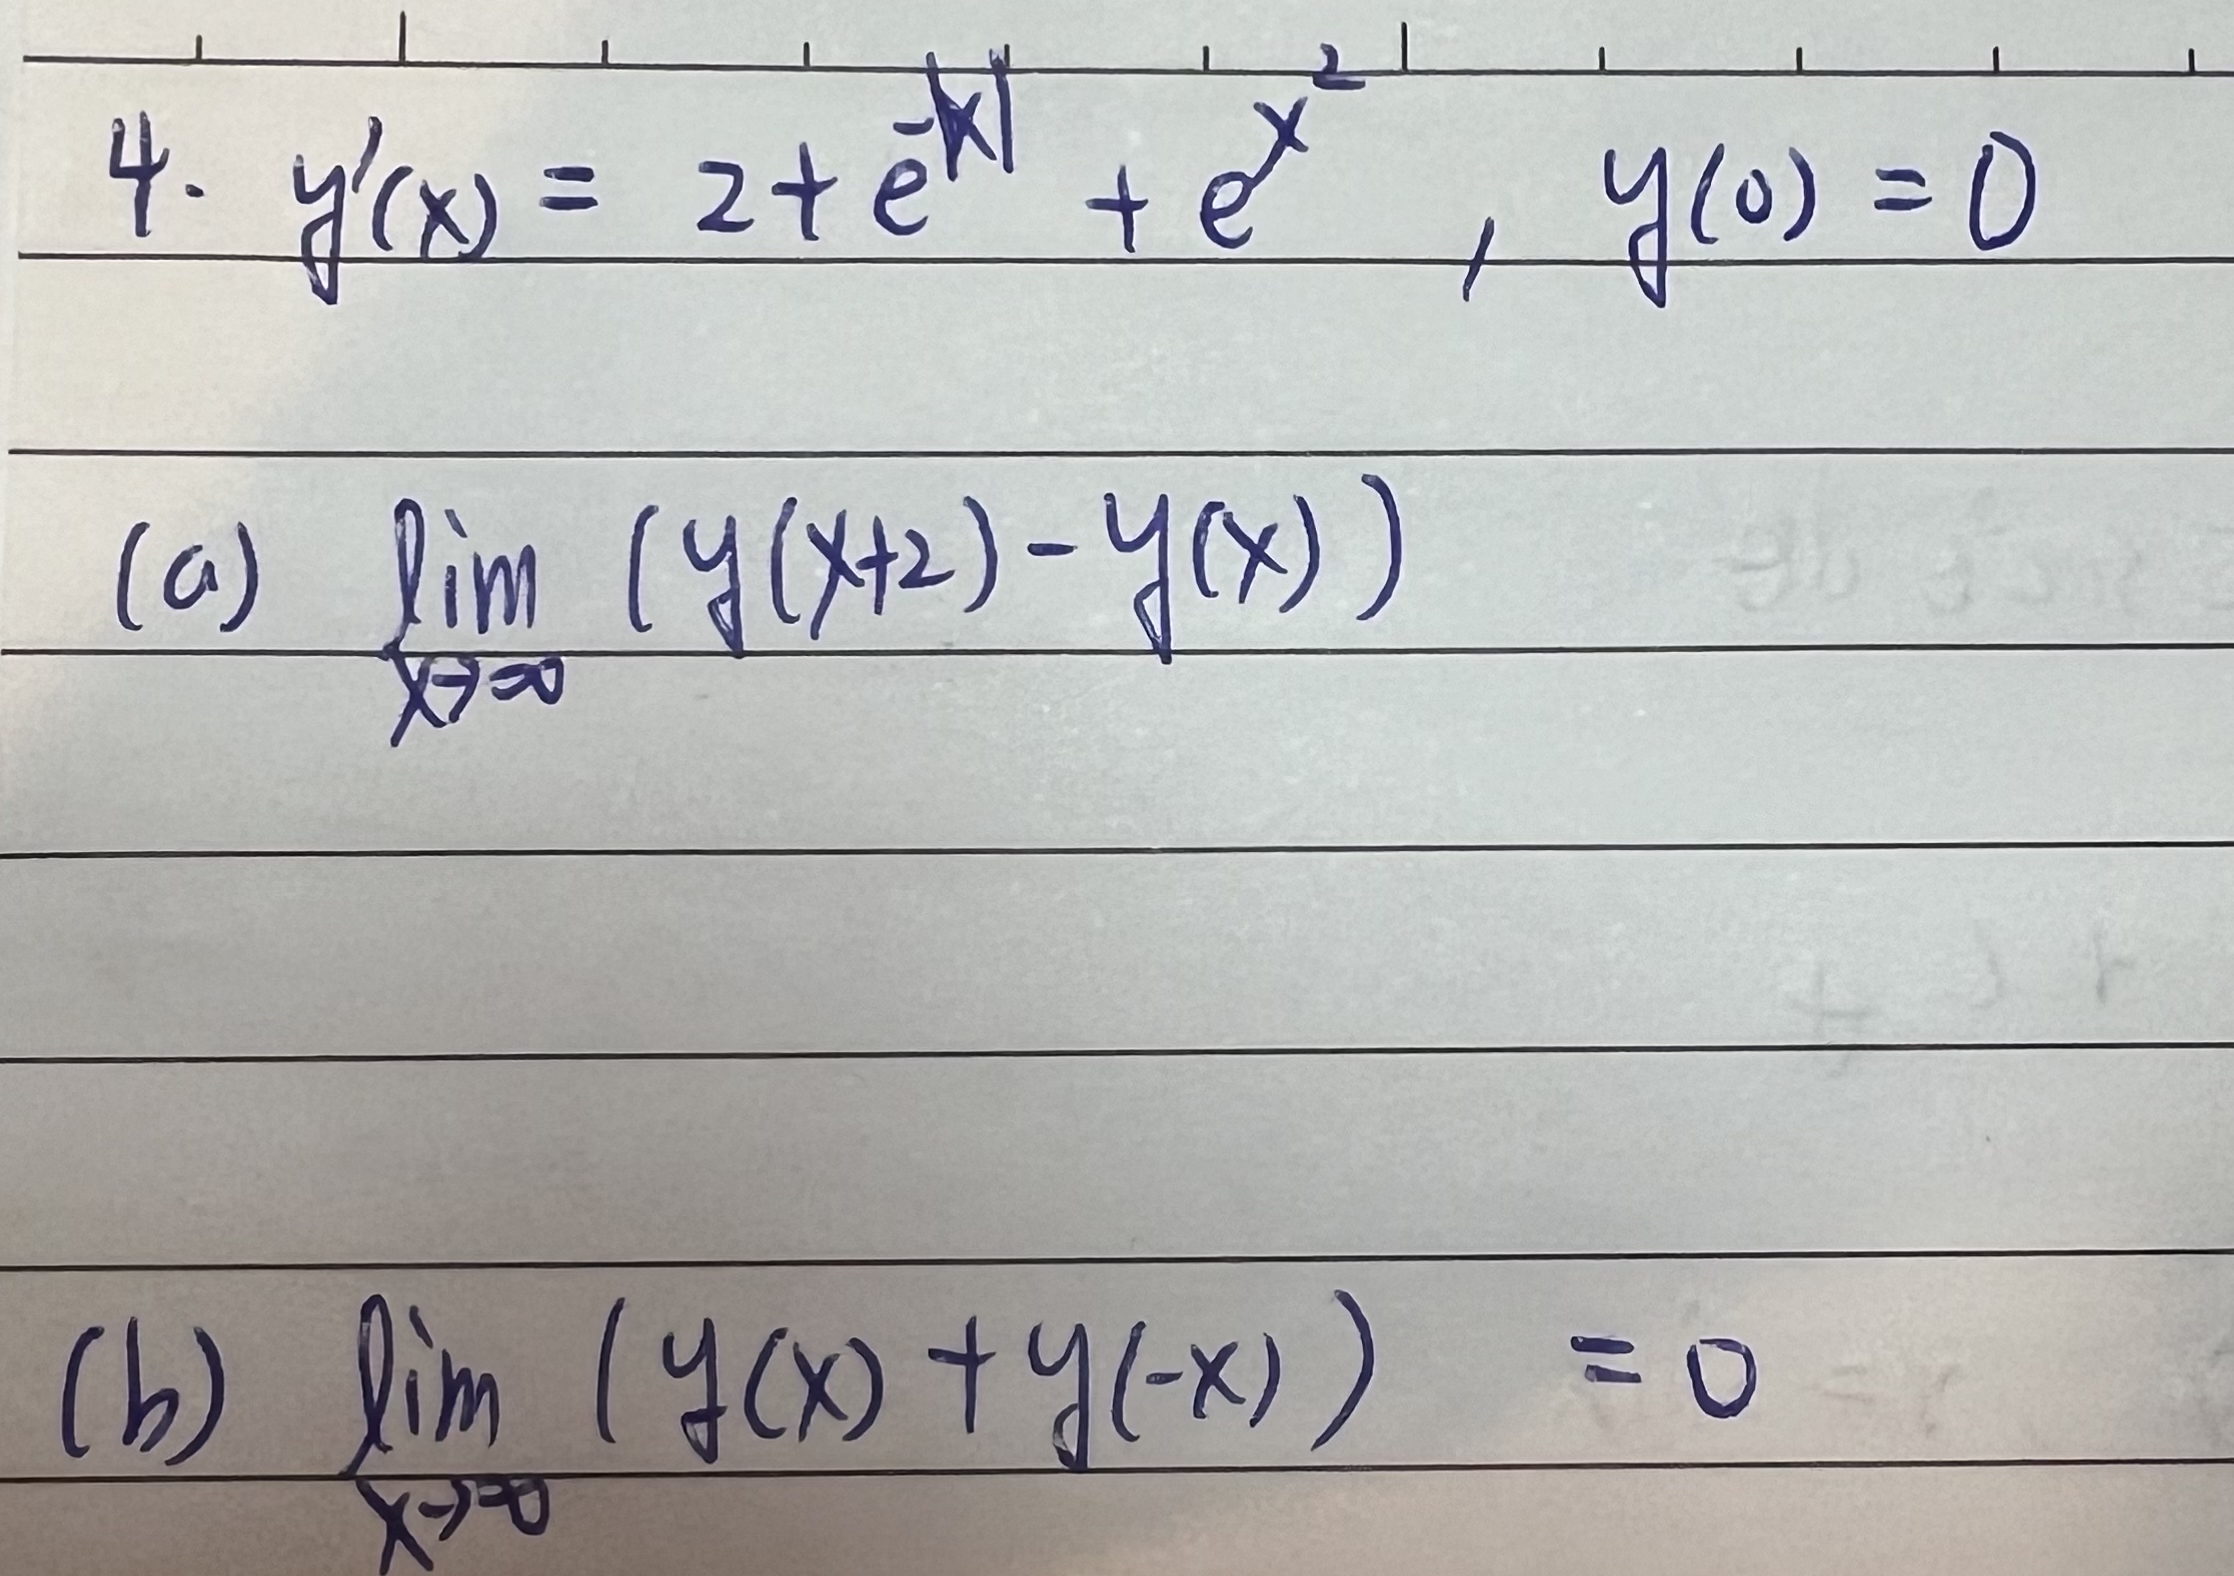 4. y'(x) = 2 + e^{-|x|} + e^{x^2} , y(0) = 0
(a) lim_{x→∞} (y(x+2) - y(x))
(b) lim_{x→∞} (y(x) + y(-x)) = 0